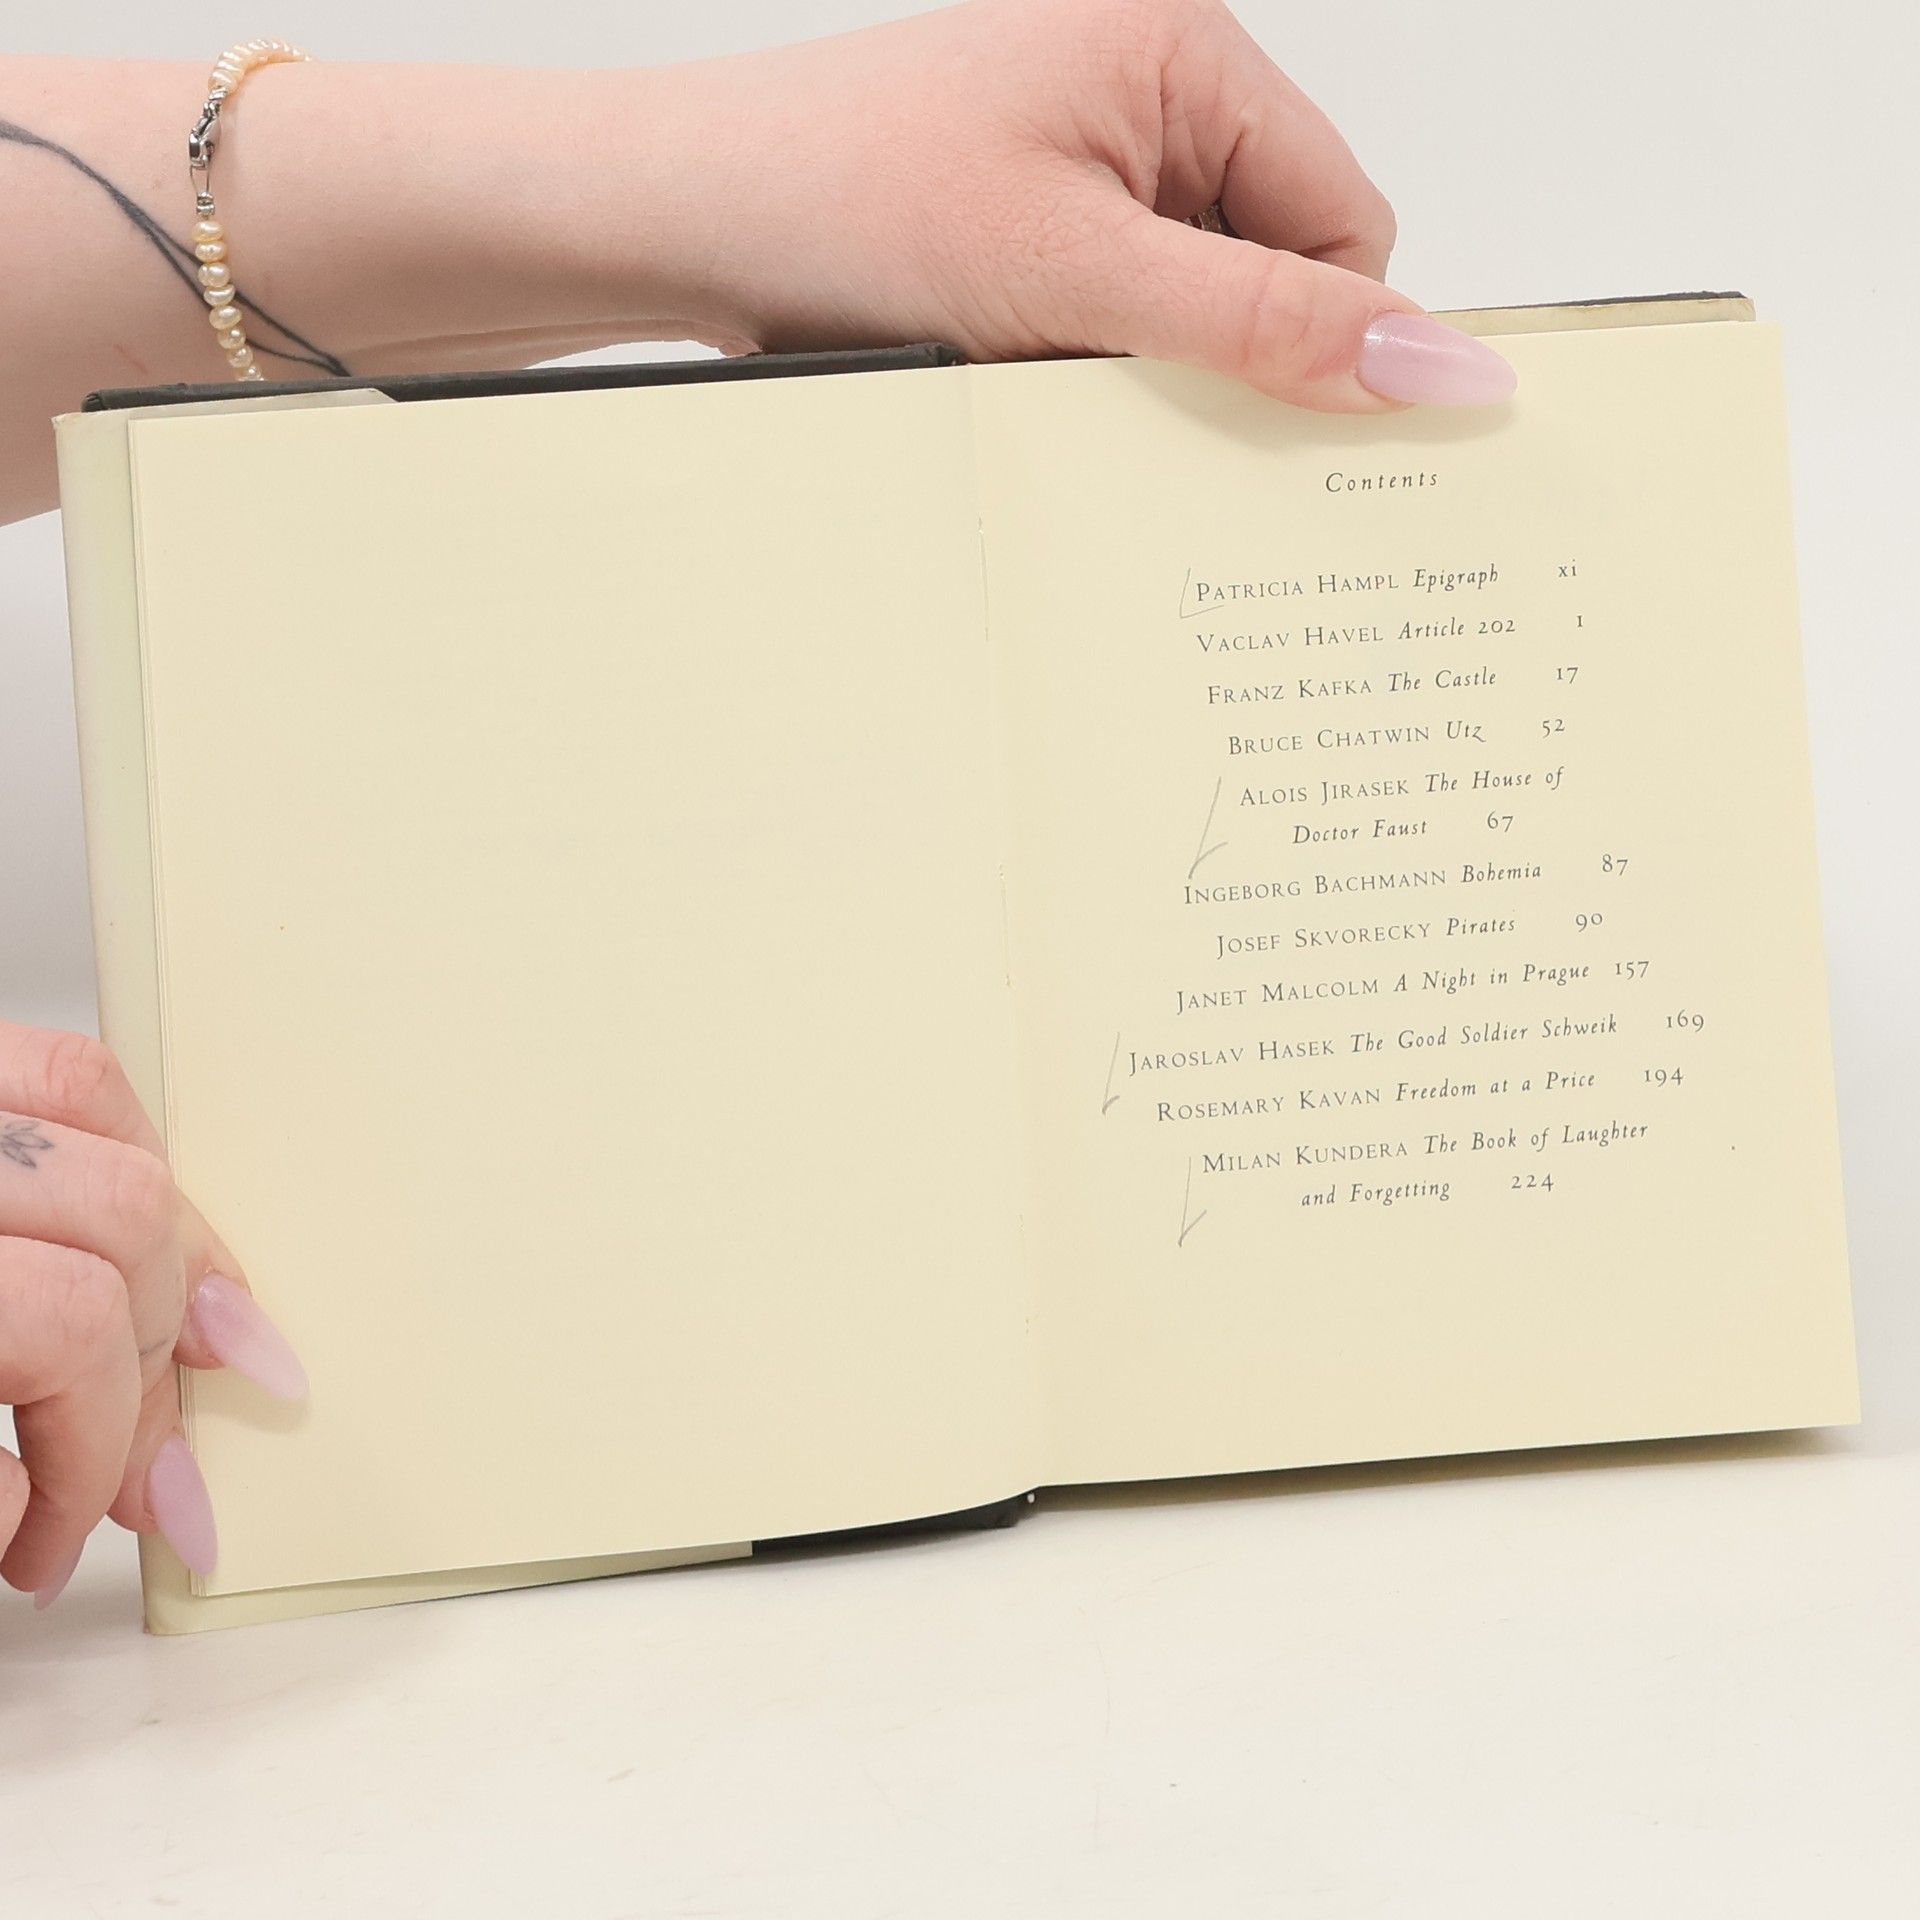 Contents
PATRICIA HAMPL Epigraph xi
VACLAV HAVEL Article 202 1
FRANZ KAFKA The Castle 17
BRUCE CHATWIN Utz 52
ALOIS JIRASEK The House of
Doctor Faust 67
INGEBORG BACHMANN Bohemia 87
JOSEF SKVORECKY Pirates 90
JANET MALCOLM A Night in Prague 157
JAROSLAV HASEK The Good Soldier Schweik 169
ROSEMARY KAVAN Freedom at a Price 194
MILAN KUNDERA The Book of Laughter
and Forgetting 224